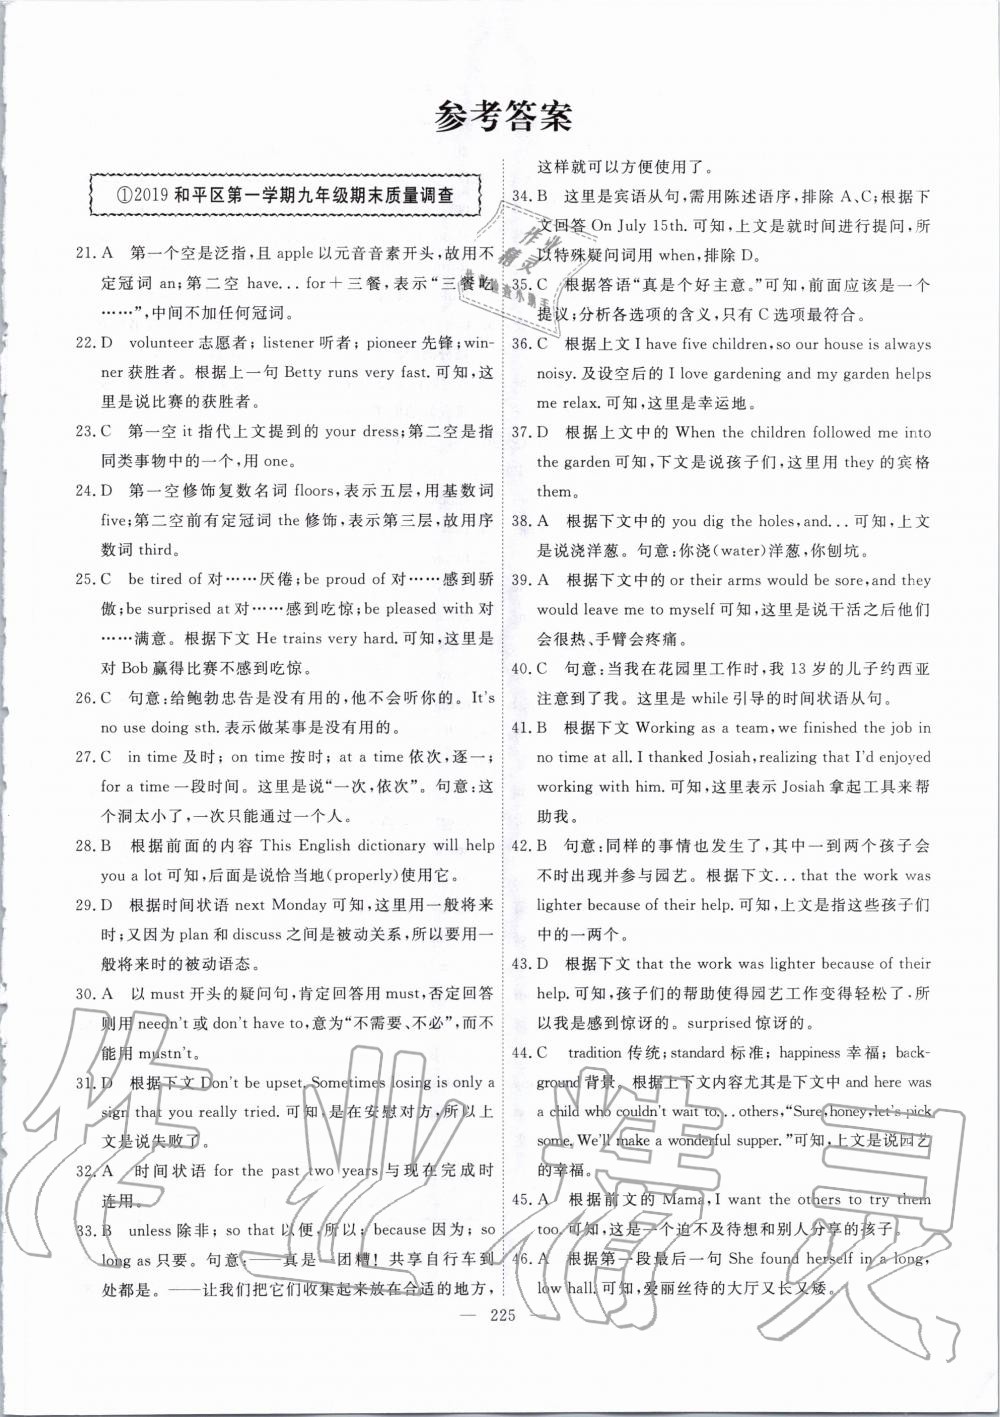 参考答案
①2019 和平区第一学期九年级期末质量调查
21. A 第一个空是泛指,且 apple 以元音音素开头,故用不
定冠词 an;第二空 have... for＋三餐,表示“三餐吃
……”,中间不加任何冠词。
22. D volunteer 志愿者; listener 听者; pioneer 先锋; win-
ner 获胜者。根据上一句 Betty runs very fast. 可知,这
里是说比赛的获胜者。
23. C 第一空 it 指代上文提到的 your dress;第二空是指
同类事物中的一个,用 one。
24. D 第一空修饰复数名词 floors,表示五层,用基数词
five;第二空前有定冠词 the 修饰,表示第三层,故用序
数词 third。
25. C be tired of 对……厌倦; be proud of 对……感到骄
傲; be surprised at 对……感到吃惊; be pleased with 对
……满意。根据下文 He trains very hard. 可知,这里是
对 Bob 赢得比赛不感到吃惊。
26. C 句意:给鲍勃忠告是没有用的,他不会听你的。It's
no use doing sth. 表示做某事是没有用的。
27. C in time 及时; on time 按时; at a time 依次,逐一;
for a time 一段时间。这里是说“一次,依次”。句意:这
个洞太小了,一次只能通过一个人。
28. B 根据前面的内容 This English dictionary will help
you a lot 可知,后面是说恰当地(properly)使用它。
29. D 根据时间状语 next Monday 可知,这里用一般将来
时;又因为 plan 和 discuss 之间是被动关系,所以要用一
般将来时的被动语态。
30. A 以 must 开头的疑问句,肯定回答用 must,否定回答
则用 needn't 或 don't have to,意为“不需要、不必”,而不
能用 mustn't。
31. D 根据下文 Don't be upset. Sometimes losing is only a
sign that you really tried. 可知,是在安慰对方,所以上
文是说失败了。
32. A 时间状语 for the past two years 与现在完成时
连用。
33. B unless 除非; so that 以便,所以; because 因为; so
long as 只要。句意:——真是一团糟！共享自行车到
处都是。——让我们把它们收集起来放在合适的地方,
这样就可以方便使用了。
34. B 这里是宾语从句,需用陈述语序,排除 A、C;根据下
文回答 On July 15th. 可知,上文是就时间进行提问,所
以特殊疑问词用 when,排除 D。
35. C 根据答语“真是个好主意。”可知,前面应该是一个
提议;分析各选项的含义,只有 C 选项最符合。
36. C 根据上文 I have five children, so our house is always
noisy. 及设空后的 I love gardening and my garden helps
me relax. 可知,这里是幸运地。
37. D 根据上文中的 When the children followed me into
the garden 可知,下文是说孩子们,这里用 they 的宾格
them。
38. A 根据下文中的 you dig the holes, and... 可知,上文
是说浇洋葱。句意:你浇(water)洋葱,你刨坑。
39. A 根据下文中的 or their arms would be sore, and they
would leave me to myself 可知,这里是说干活之后他们
会很热、手臂会疼痛。
40. C 句意:当我在花园里工作时,我 13 岁的儿子约西亚
注意到了我。这里是 while 引导的时间状语从句。
41. B 根据下文 Working as a team, we finished the job in
no time at all. I thanked Josiah, realizing that I'd enjoyed
working with him. 可知,这里表示 Josiah 拿起工具来帮
助我。
42. B 句意:同样的事情也发生了,其中一到两个孩子会
不时出现并参与园艺。根据下文... that the work was
lighter because of their help. 可知,上文是指这些孩子们
中的一两个。
43. D 根据下文 that the work was lighter because of their
help. 可知,孩子们的帮助使得园艺工作变得轻松了,所
以我是感到惊讶的。surprised 惊讶的。
44. C tradition 传统; standard 标准; happiness 幸福; back-
ground 背景。根据上下文内容尤其是下文中 and here was
a child who couldn't wait to... others, “Sure, honey, let's pick
some. We'll make a wonderful supper.”可知,上文是说园艺
的幸福。
45. A 根据前文的 Mama, I want the others to try them
too. 可知,这是一个迫不及待想和别人分享的孩子。
46. A 根据第一段最后一句 She found herself in a long,
low hall. 可知,爱丽丝待的大厅又长又矮。
— 225 —
作业精灵
作业
精灵